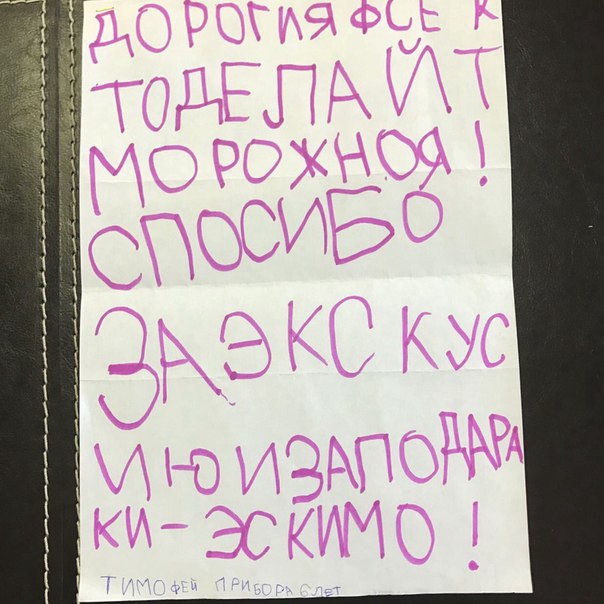 ДОРОГИЯ ФСЕ К
ТОДЕЛАЙТ
МОРОЖНОЯ!
СПОСИБО
ЗАЭКСКУС
ИЮИЗАПОДАРА
КИ-ЭСКИМО!
ТИМОФЕЙ ПРИБОРА 6 лет